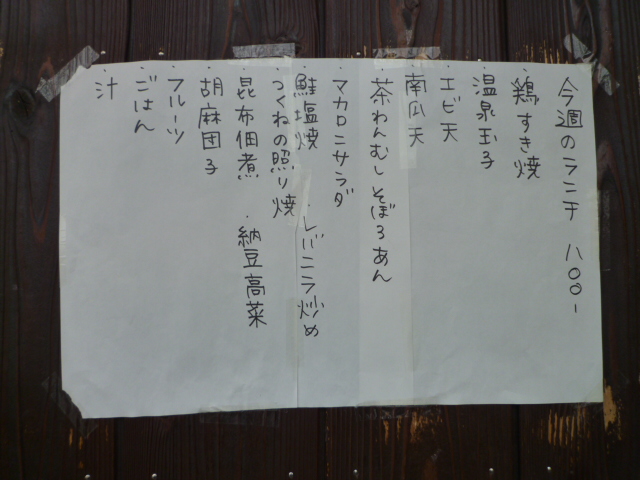 今週のランチ 八〇〇-
・鶏すき焼
・温泉玉子
・エビ天
・南瓜天
・茶わんむしそぼろあん
・マカロニサラダ
・鮭塩焼 ・レバニラ炒め
・つくねの照り焼
・昆布佃煮 ・納豆高菜
・胡麻団子
・フルーツ
・ごはん
・汁